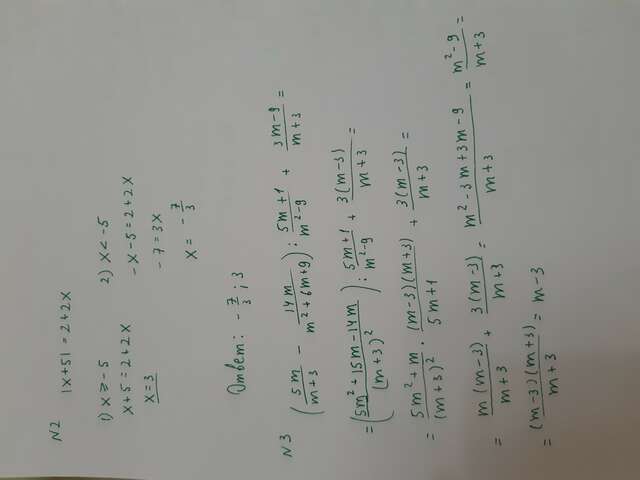 N2 |x+5|=2+2x
1) x ≥ -5 2) x < -5
x+5=2+2x -x-5=2+2x
x=3 -7=3x
x = -7/3
Ответ: -7/3 ; 3
N3 (5m/(m+3) - 14m/(m²+6m+9)) : (5m+1)/(m²-9) + (3m-9)/(m+3) =
= ((5m²+15m-14m)/(m+3)²) : (5m+1)/(m²-9) + 3(m-3)/(m+3) =
= (5m²+m)/(m+3)² · (m-3)(m+3)/(5m+1) + 3(m-3)/(m+3) =
= m(m-3)/(m+3) + 3(m-3)/(m+3) = (m²-3m+3m-9)/(m+3) = (m²-9)/(m+3) =
= (m-3)(m+3)/(m+3) = m-3